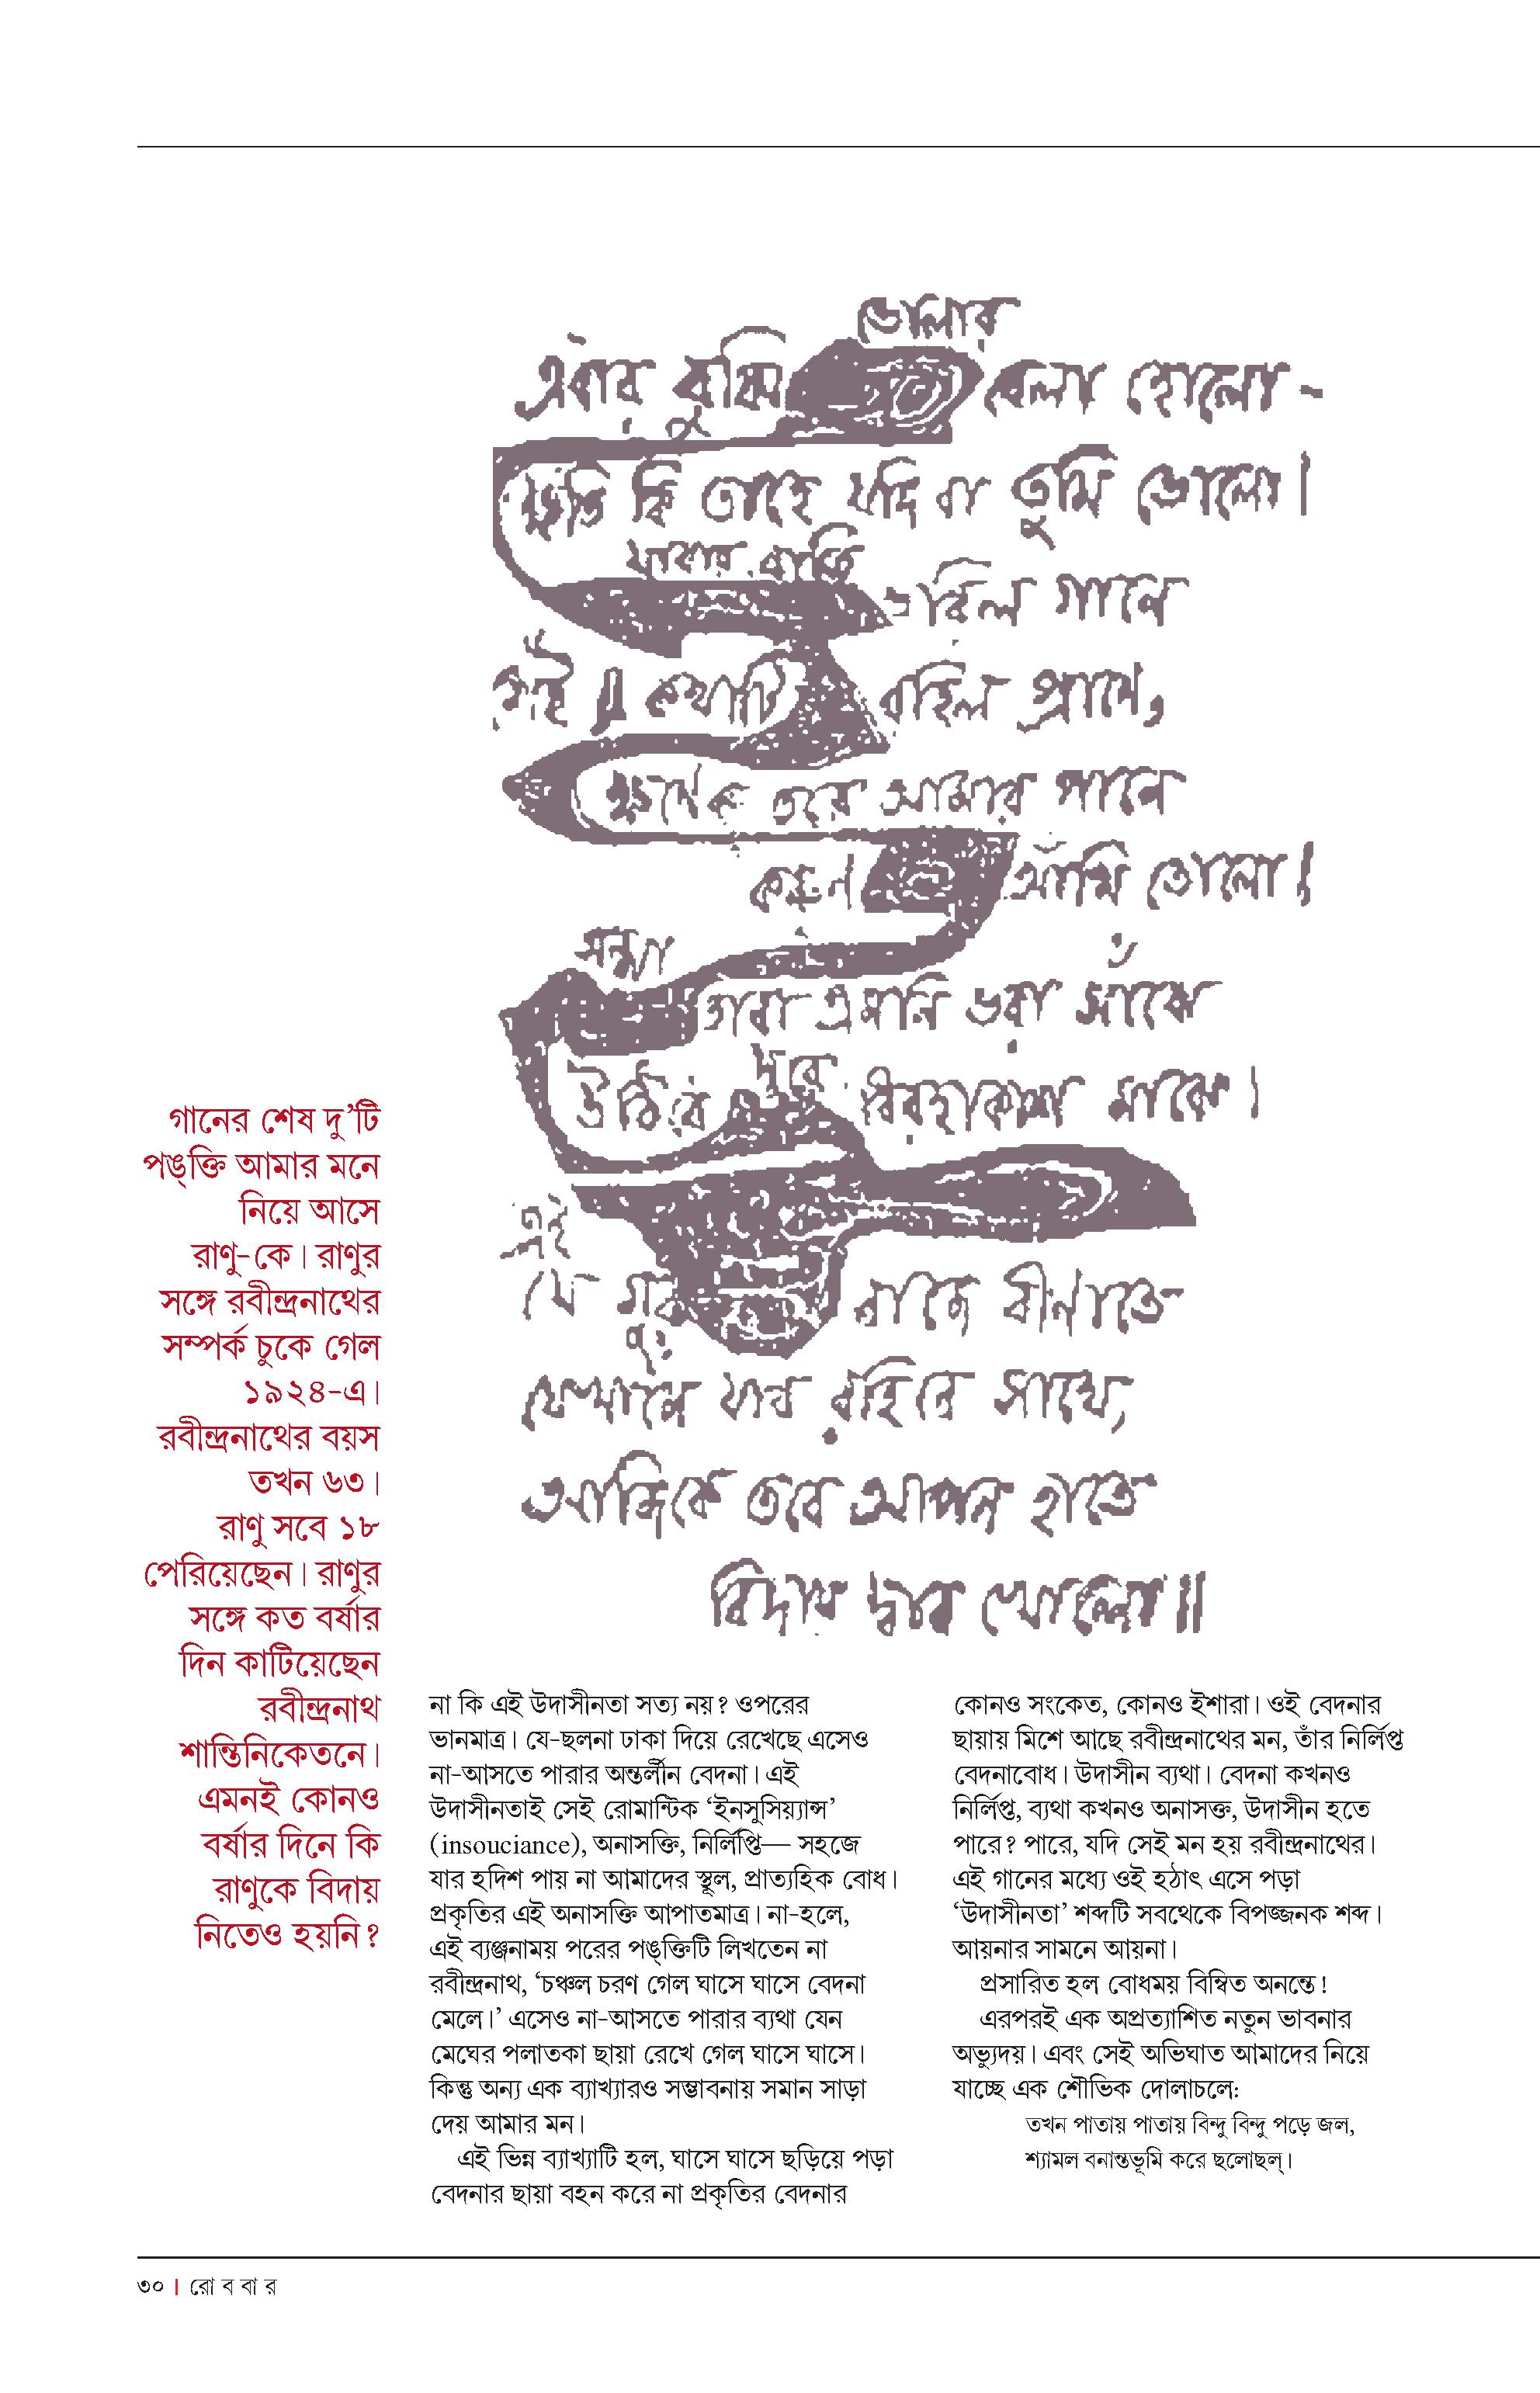 ভোলার
এবার বুঝি বেলা হোলো -
ক্ষতি কি তাহে যদি বা তুমি ভোলো।
যাবার রাতি ভরিল গানে
সেই কথাটি রহিল প্রাণে,
ক্ষণেক তরে আমার পানে
করুণ আঁখি তোলো।
সন্ধ্যা
তারা এমনি ভরা সাঁঝে
উঠিবে দূরে বিরহাকাশ মাঝে।
এই
যে সুর বাজে বীণাতে
যেখানে যাব রহিবে সাথে,
আজিকে তবে আপন হাতে
বিদায় দ্বার খোলো॥
গানের শেষ দু’টি
পঙ্‌ক্তি আমার মনে
নিয়ে আসে
রাণু-কে। রাণুর
সঙ্গে রবীন্দ্রনাথের
সম্পর্ক চুকে গেল
১৯২৪-এ।
রবীন্দ্রনাথের বয়স
তখন ৬৩।
রাণু সবে ১৮
পেরিয়েছেন। রাণুর
সঙ্গে কত বর্ষার
দিন কাটিয়েছেন
রবীন্দ্রনাথ
শান্তিনিকেতনে।
এমনই কোনও
বর্ষার দিনে কি
রাণুকে বিদায়
নিতেও হয়নি?
না কি এই উদাসীনতা সত্য নয়? ওপরের
ভানমাত্র। যে-ছলনা ঢাকা দিয়ে রেখেছে এসেও
না-আসতে পারার অন্তর্লীন বেদনা। এই
উদাসীনতাই সেই রোমান্টিক ‘ইনসুসিয়্যান্স’
(insouciance), অনাসক্তি, নির্লিপ্তি— সহজে
যার হদিশ পায় না আমাদের স্থূল, প্রাত্যহিক বোধ।
প্রকৃতির এই অনাসক্তি আপাতমাত্র। না-হলে,
এই ব্যঞ্জনাময় পরের পঙ্‌ক্তিটি লিখতেন না
রবীন্দ্রনাথ, ‘চঞ্চল চরণ গেল ঘাসে ঘাসে বেদনা
মেলে।’ এসেও না-আসতে পারার ব্যথা যেন
মেঘের পলাতকা ছায়া রেখে গেল ঘাসে ঘাসে।
কিন্তু অন্য এক ব্যাখ্যারও সম্ভাবনায় সমান সাড়া
দেয় আমার মন।
এই ভিন্ন ব্যাখ্যাটি হল, ঘাসে ঘাসে ছড়িয়ে পড়া
বেদনার ছায়া বহন করে না প্রকৃতির বেদনার
কোনও সংকেত, কোনও ইশারা। ওই বেদনার
ছায়ায় মিশে আছে রবীন্দ্রনাথের মন, তাঁর নির্লিপ্ত
বেদনাবোধ। উদাসীন ব্যথা। বেদনা কখনও
নির্লিপ্ত, ব্যথা কখনও অনাসক্ত, উদাসীন হতে
পারে? পারে, যদি সেই মন হয় রবীন্দ্রনাথের।
এই গানের মধ্যে ওই হঠাৎ এসে পড়া
‘উদাসীনতা’ শব্দটি সবথেকে বিপজ্জনক শব্দ।
আয়নার সামনে আয়না।
প্রসারিত হল বোধময় বিম্বিত অনন্তে!
এরপরই এক অপ্রত্যাশিত নতুন ভাবনার
অভ্যুদয়। এবং সেই অভিঘাত আমাদের নিয়ে
যাচ্ছে এক শৌভিক দোলাচলে:
তখন পাতায় পাতায় বিন্দু বিন্দু পড়ে জল,
শ্যামল বনান্তভূমি করে ছলোছল্।
৩০ | রো ব বা র